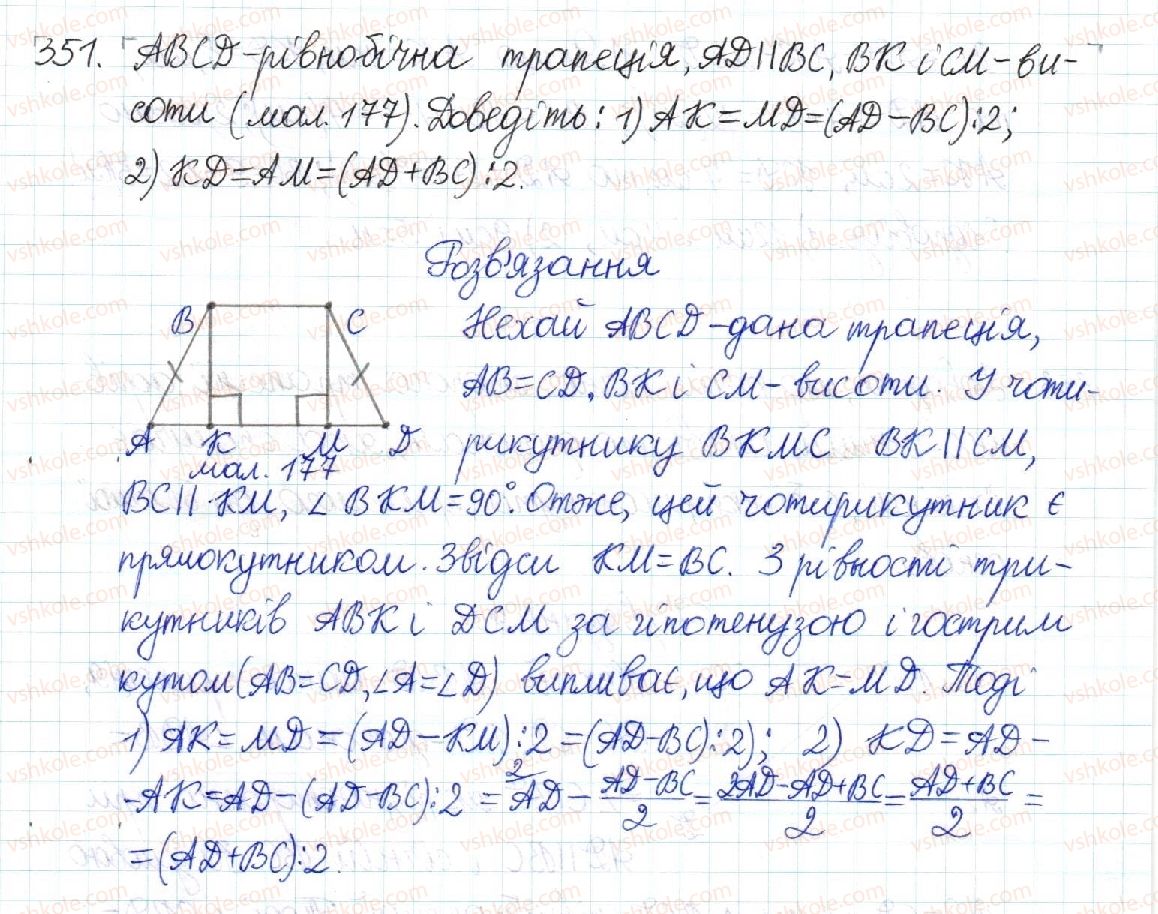 351. ABCD-рівнобічна трапеція, AD||BC, BK і CM-ви-
соти (мал. 177). Доведіть: 1) AK=MD=(AD-BC):2;
2) KD=AM=(AD+BC):2.
Розв'язання
B C
Нехай ABCD-дана трапеція,
AB=CD, BK і CM-висоти. У чоти-
A K M D
рикутнику BKMC BK||CM,
мал. 177
BC||KM, ∠BKM=90°. Отже, цей чотирикутник є
прямокутником. Звідси KM=BC. З рівності три-
кутників ABK і DCM за гіпотенузою і гострим
кутом (AB=CD, ∠A=∠D) випливає, що AK=MD. Тоді
1) AK=MD=(AD-KM):2=(AD-BC):2); 2) KD=AD-
-AK=AD-(AD-BC):2 = ²AD - (AD-BC)/2 = (2AD-AD+BC)/2 = (AD+BC)/2 =
=(AD+BC):2.
vshkole.com